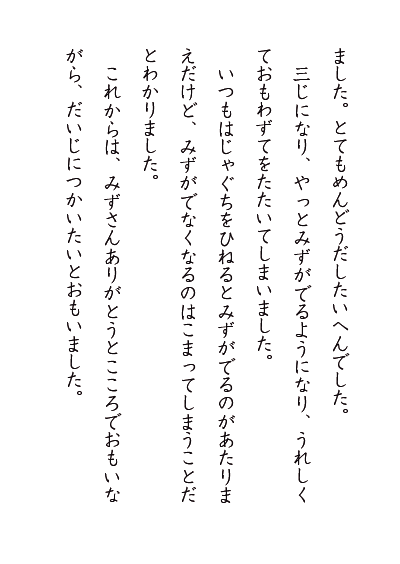 ました。とてもめんどうだしたいへんでした。
三じになり、やっとみずがでるようになり、うれしく
ておもわずてをたたいてしまいました。
いつもはじゃぐちをひねるとみずがでるのがあたりま
えだけど、みずがでなくなるのはこまってしまうことだ
とわかりました。
これからは、みずさんありがとうとこころでおもいな
がら、だいじにつかいたいとおもいました。